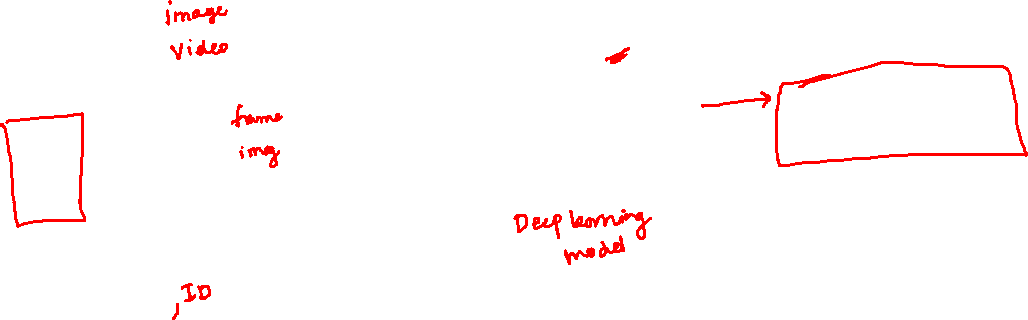 image
video
frame
img
Deep learning
model
, ID